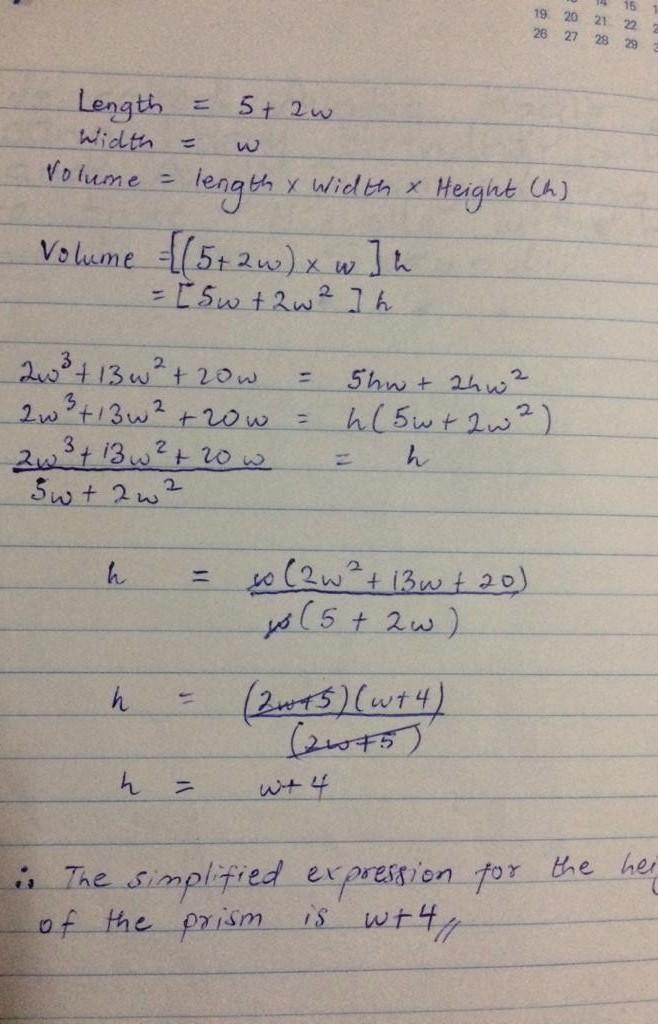 14 15
19 20 21 22
26 27 28 29
Length = 5 + 2w
Width = w
Volume = length × Width × Height (h)
Volume = [(5 + 2w) × w ] h
= [ 5w + 2w² ] h
2w³ + 13w² + 20w = 5hw + 2hw²
2w³ + 13w² + 20w = h(5w + 2w²)
2w³ + 13w² + 20w = h
5w + 2w²
h = w(2w² + 13w + 20)
w(5 + 2w)
h = (2w+5)(w+4)
(2w+5)
h = w+4
∴ The simplified expression for the
of the prism is w+4//